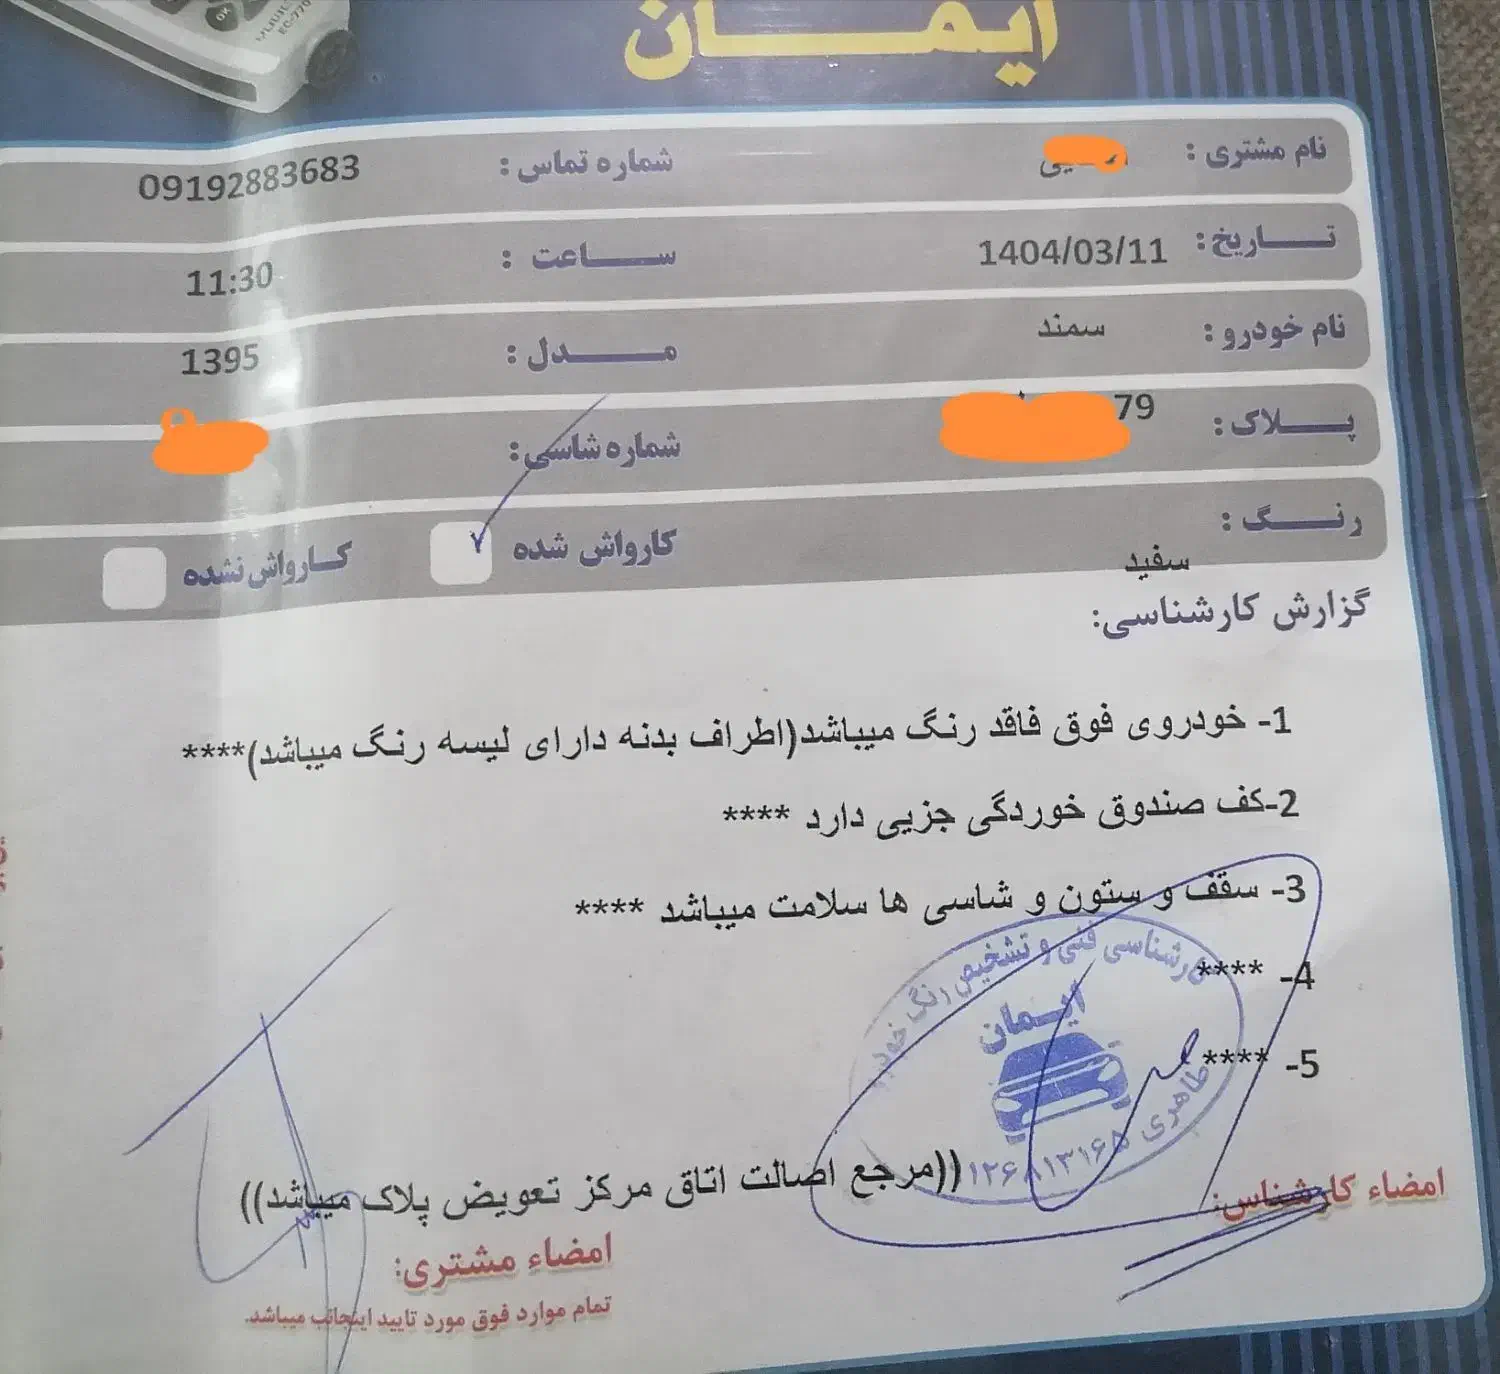 ایمان
نام مشتری :
شماره تماس : 09192883683
تاریخ: 1404/03/11
ساعت : 11:30
نام خودرو : سمند
مدل : 1395
پلاک : 79
شماره شاسی:
رنگ : سفید
کارواش شده
کارواش نشده
گزارش کارشناسی:
1- خودروی فوق فاقد رنگ میباشد(اطراف بدنه دارای لیسه رنگ میباشد)****
2-کف صندوق خوردگی جزیی دارد ****
3- سقف و ستون و شاسی ها سلامت میباشد ****
4- ****
5- ****
فنی و تشخیص رنگ
ایمان
طاهری
((مرجع اصالت اتاق مرکز تعویض پلاک میباشد))
امضاء کارشناس:
امضاء مشتری:
تمام موارد فوق مورد تایید اینجانب میباشد.